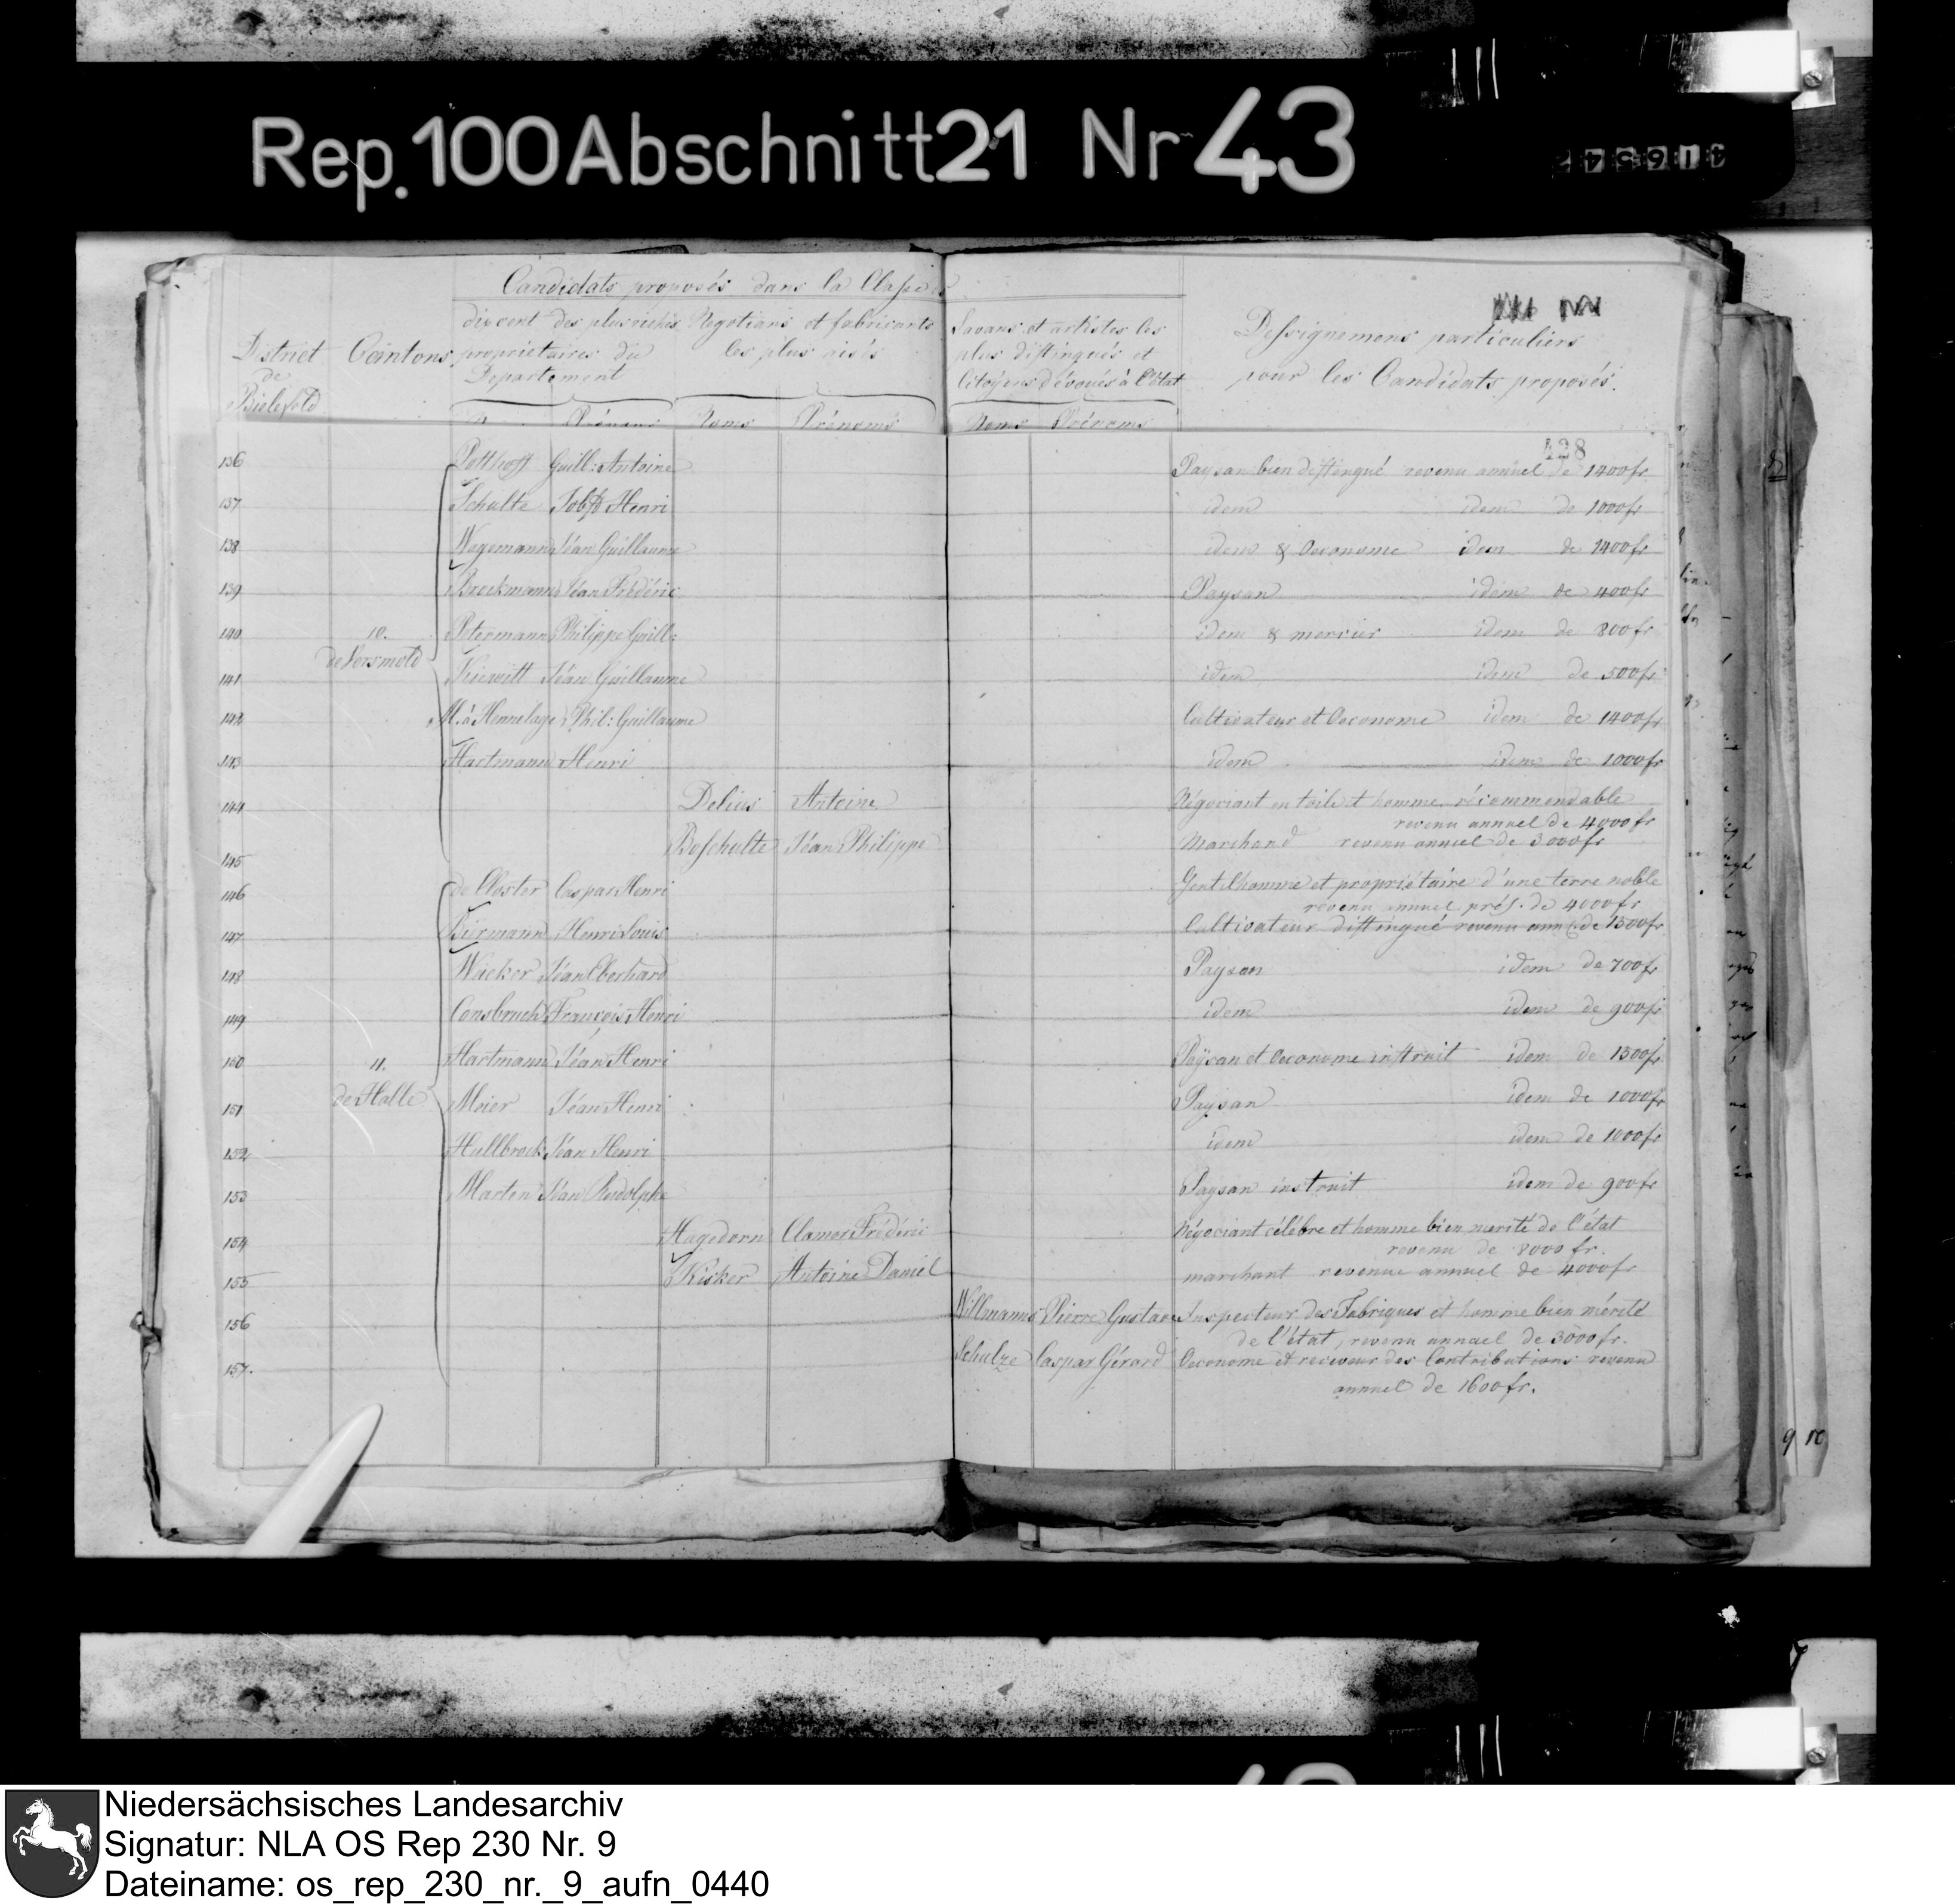 Rep. 100 Abschnitt 21 Nr 43
Candidats proposés dans la Classe
District de Bielefeld
Cantons
dix cent des plus riches propriétaires du Departement
Negotians et fabricants les plus aisés
Savans et artistes les plus distingués et Citoyens dévoués à l'état
Dessignemens particuliers pour les Candidats proposés.
Prénoms Noms Prénoms Noms Prénoms
428
136 Potthoff Guill: Antoine Paysan bien distingué revenu annuel de 1400 fr
137 Schulte Henri idem idem de 1000 fr
138 Wegemann Jéan Guillaume idem & Oeconome idem de 1400 fr
139 Brockmann Jéan Frédéric Paysan idem de 400 fr
140 10. Petermann Philippe Guill: idem & mercier idem de 800 fr
de Versmold
141 Kiewitt Jéan Guillaume idem idem de 500 fr
142 M. à Hennelage Phil: Guillaume Cultivateur et Oeconome idem de 1400 fr
143 Hartmann Henri idem idem de 1000 fr
144 Delius Antoine Négociant en toile et homme récommendable
revenu annuel de 4000 fr
145 Boschulte Jéan Philippe Marchand revenu annuel de 3000 fr
146 de Closter Caspar Henri Gentilhomme et propriétaire d'une terre noble
révenu annuel prés. de 4000 fr
147 Biermann Henri Louis Cultivateur distingué revenu ann. de 1500 fr
148 Wacker Jéan Eberhard Paysan idem de 700 fr
149 Consbruch François Henri idem idem de 900 fr
150 11. Hartmann Jéan Henri Paysan et Oeconome instruit idem de 1500 fr
de Halle
151 Meier Jéan Henri Paysan idem de 1000 fr
152 Hullbrock Jéan Henri idem idem de 1000 fr
153 Marten Jéan Rudolphe Paysan instruit idem de 900 fr
154 Hagedorn Clamor Frédéric Négociant célébre et homme bien merité de l'état
revenu de 8000 fr.
155 Kisker Antoine Daniel marchant revenue annuel de 4000 fr
156 Willmanns Pierre Gustave Inspecteur des Fabriques et homme bien mérité
de l'état, revenu annuel de 3000 fr.
157. Schulze Caspar Gérard Oeconome et receveur des Contributions revenu
annuel de 1600 fr.
Niedersächsisches Landesarchiv
Signatur: NLA OS Rep 230 Nr. 9
Dateiname: os_rep_230_nr._9_aufn_0440